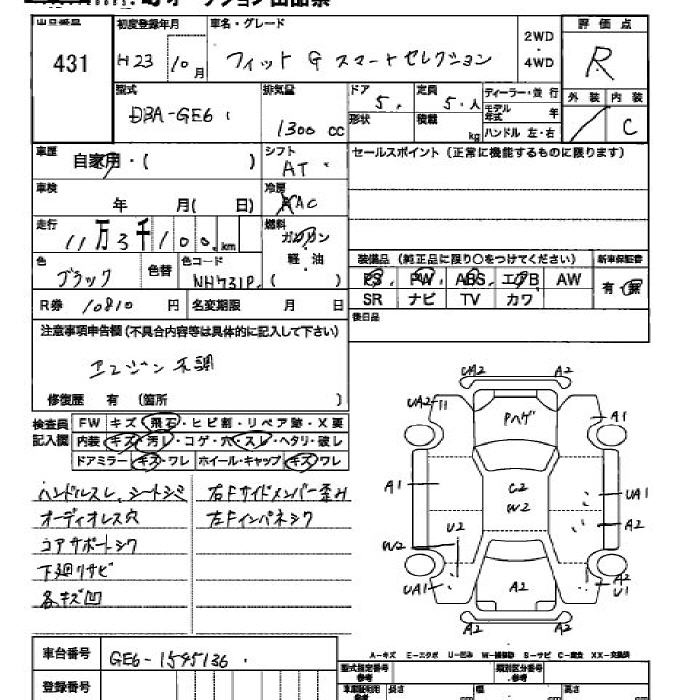 オークション出品票
出品番号 初度登録年月 車名・グレード 2WD・4WD 評価点
431 H23 10月 フィット G スマートセレクション R
型式 排気量 ドア 5 定員 5人 ディーラー・並行 外装 内装
DBA-GE6 1300cc 形状 積載 kg モデル年式 年 C
ハンドル 左・右
車歴 自家用・( ) シフト AT セールスポイント (正常に機能するものに限ります)
車検 年 月( 日) 冷房 AAC
走行 11万3千100km 燃料 ガソリン
軽・油
( )
色 ブラック 色替 色コード NH731P 装備品 (純正品に限り○をつけてください) 新車保証書
PS PW ABS エアB AW 有・無
R券 10810円 名変期限 月 日 SR ナビ TV カワ
後日品
注意事項申告欄 (不具合内容等は具体的に記入して下さい)
エンジン 不調
修復歴 有 (箇所 )
検査員記入欄 FW キズ・飛石・ヒビ割・リペア跡・X要
内装 キズ・汚レ・コゲ・穴・スレ・ヘタリ・破レ
ドアミラー キズ・ワレ ホイール・キャップ キズ・ワレ
ハンドルスレ、シートシミ 右Fサイドメンバー歪み
オーディオレス穴 左Fインパネシワ
コアサポートシワ
下廻りサビ
各キズ凹
UA2 A2
UA2 Pハゲ A1
A1 G2 W2 UA1
U2 A2
W2
UA1 A2 A2 U1
UA2 A2
A-キズ E-エクボ U-凹み W-補修跡 S-サビ C-腐食 XX-交換済
車台番号 GE6-1545136
型式指定番号 参考 類別区分番号 参考
登録番号 長さ 幅 高さ